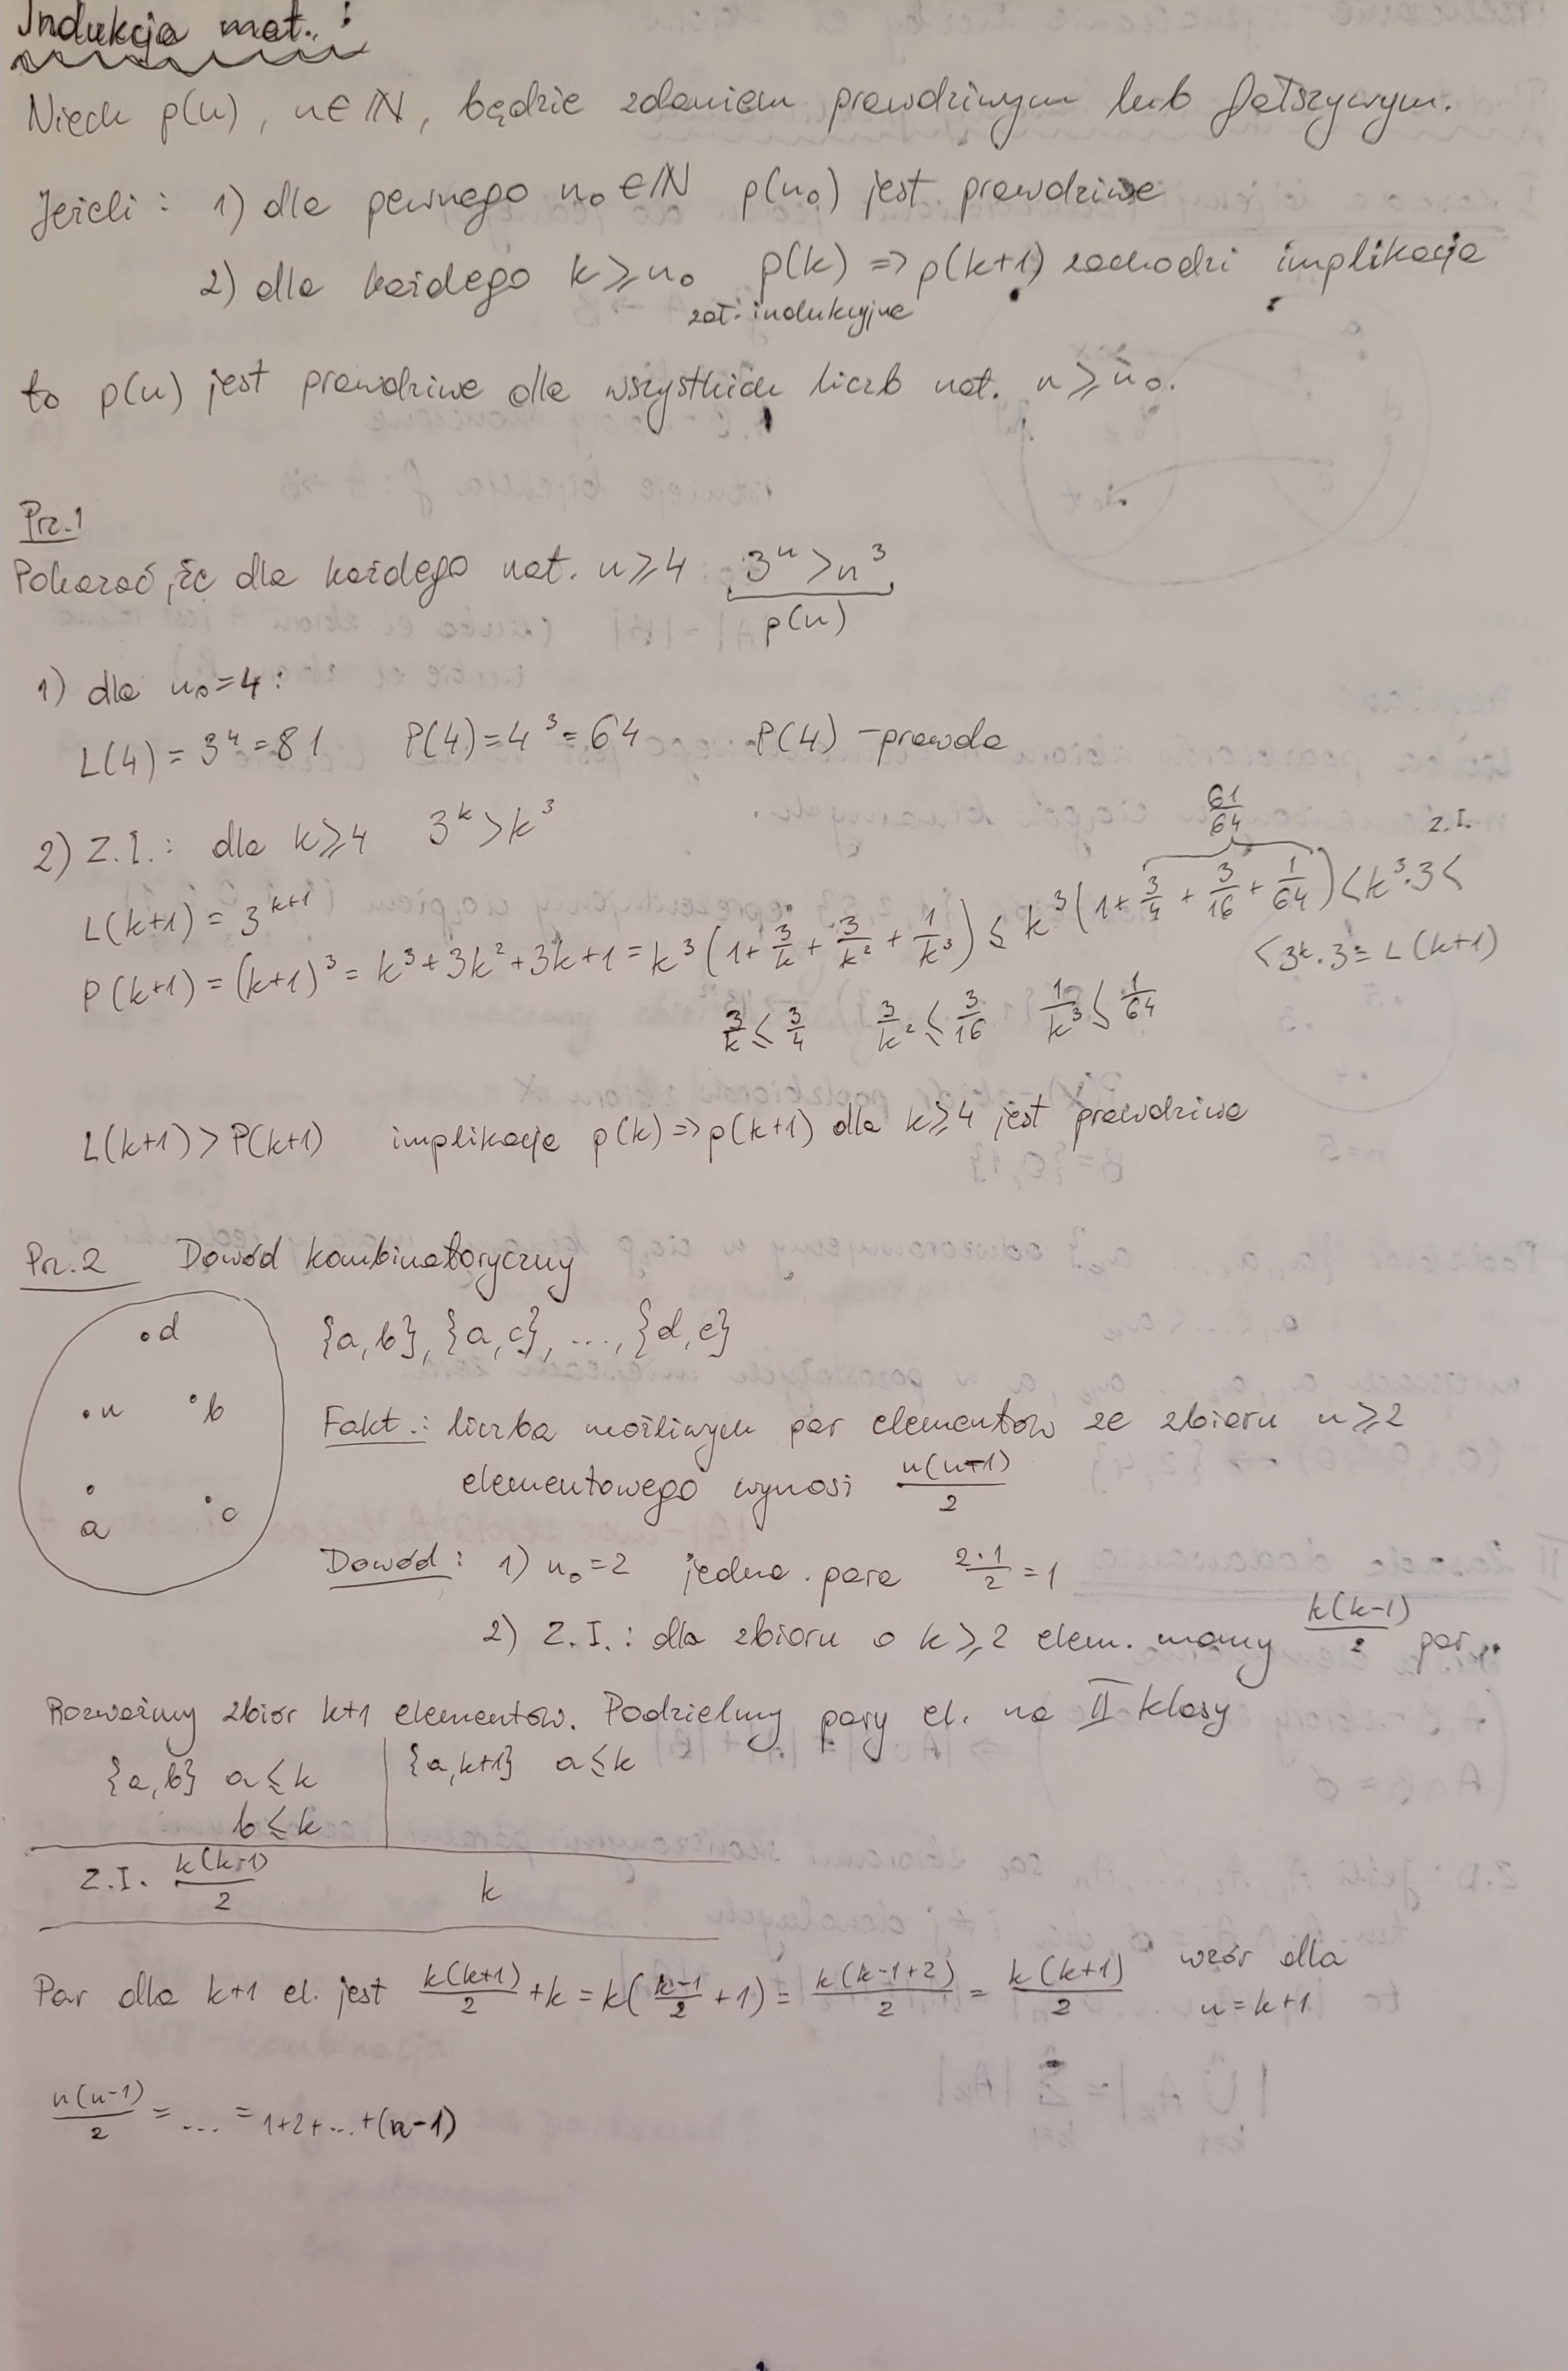 Indukcja mat.:
Niech p(n), n∈ℕ, będzie zdaniem prawdziwym lub fałszywym.
Jeżeli: 1) dla pewnego n₀∈ℕ p(n₀) jest prawdziwe
2) dla każdego k⩾n₀ p(k) => p(k+1) zachodzi implikacja
zał. indukcyjne
to p(n) jest prawdziwe dla wszystkich liczb nat. n⩾n₀.
Prz.1
Pokazać, że dla każdego nat. n⩾4 3ⁿ>n³
p(n)
1) dla n₀=4:
L(4) = 3⁴ = 81 P(4) = 4³ = 64 P(4) - prawda
2) Z.I.: dla k⩾4 3ᵏ>k³
L(k+1) = 3ᵏ⁺¹
61/64 Z.I.
P(k+1) = (k+1)³ = k³+3k²+3k+1 = k³(1+3/k+3/k²+1/k³) ≤ k³(1+3/4+3/16+1/64) < k³·3 <
< 3ᵏ·3 = L(k+1)
3/k ≤ 3/4 3/k² ≤ 3/16 1/k³ ≤ 1/64
L(k+1) > P(k+1) implikacja p(k) => p(k+1) dla k⩾4 jest prawdziwa
Prz.2 Dowód kombinatoryczny
.d
.n .b
.a .c
{a,b}, {a,c}, ..., {d,e}
Fakt.: liczba możliwych par elementów ze zbioru n⩾2
elementowego wynosi n(n-1)/2
Dowód: 1) n₀=2 jedna para 2·1/2 = 1
2) Z.I.: dla zbioru o k⩾2 elem. mamy k(k-1)/2 par.
Rozważmy zbiór k+1 elementów. Podzielmy pary el. na II klasy
{a,b} a≤k {a,k+1} a≤k
b≤k
Z.I. k(k-1)/2 k
Par dla k+1 el. jest k(k+1)/2 + k = k(k-1/2 + 1) = k(k-1+2)/2 = k(k+1)/2 wzór dla
n=k+1
n(n-1)/2 = ... = 1+2+...+(n-1)